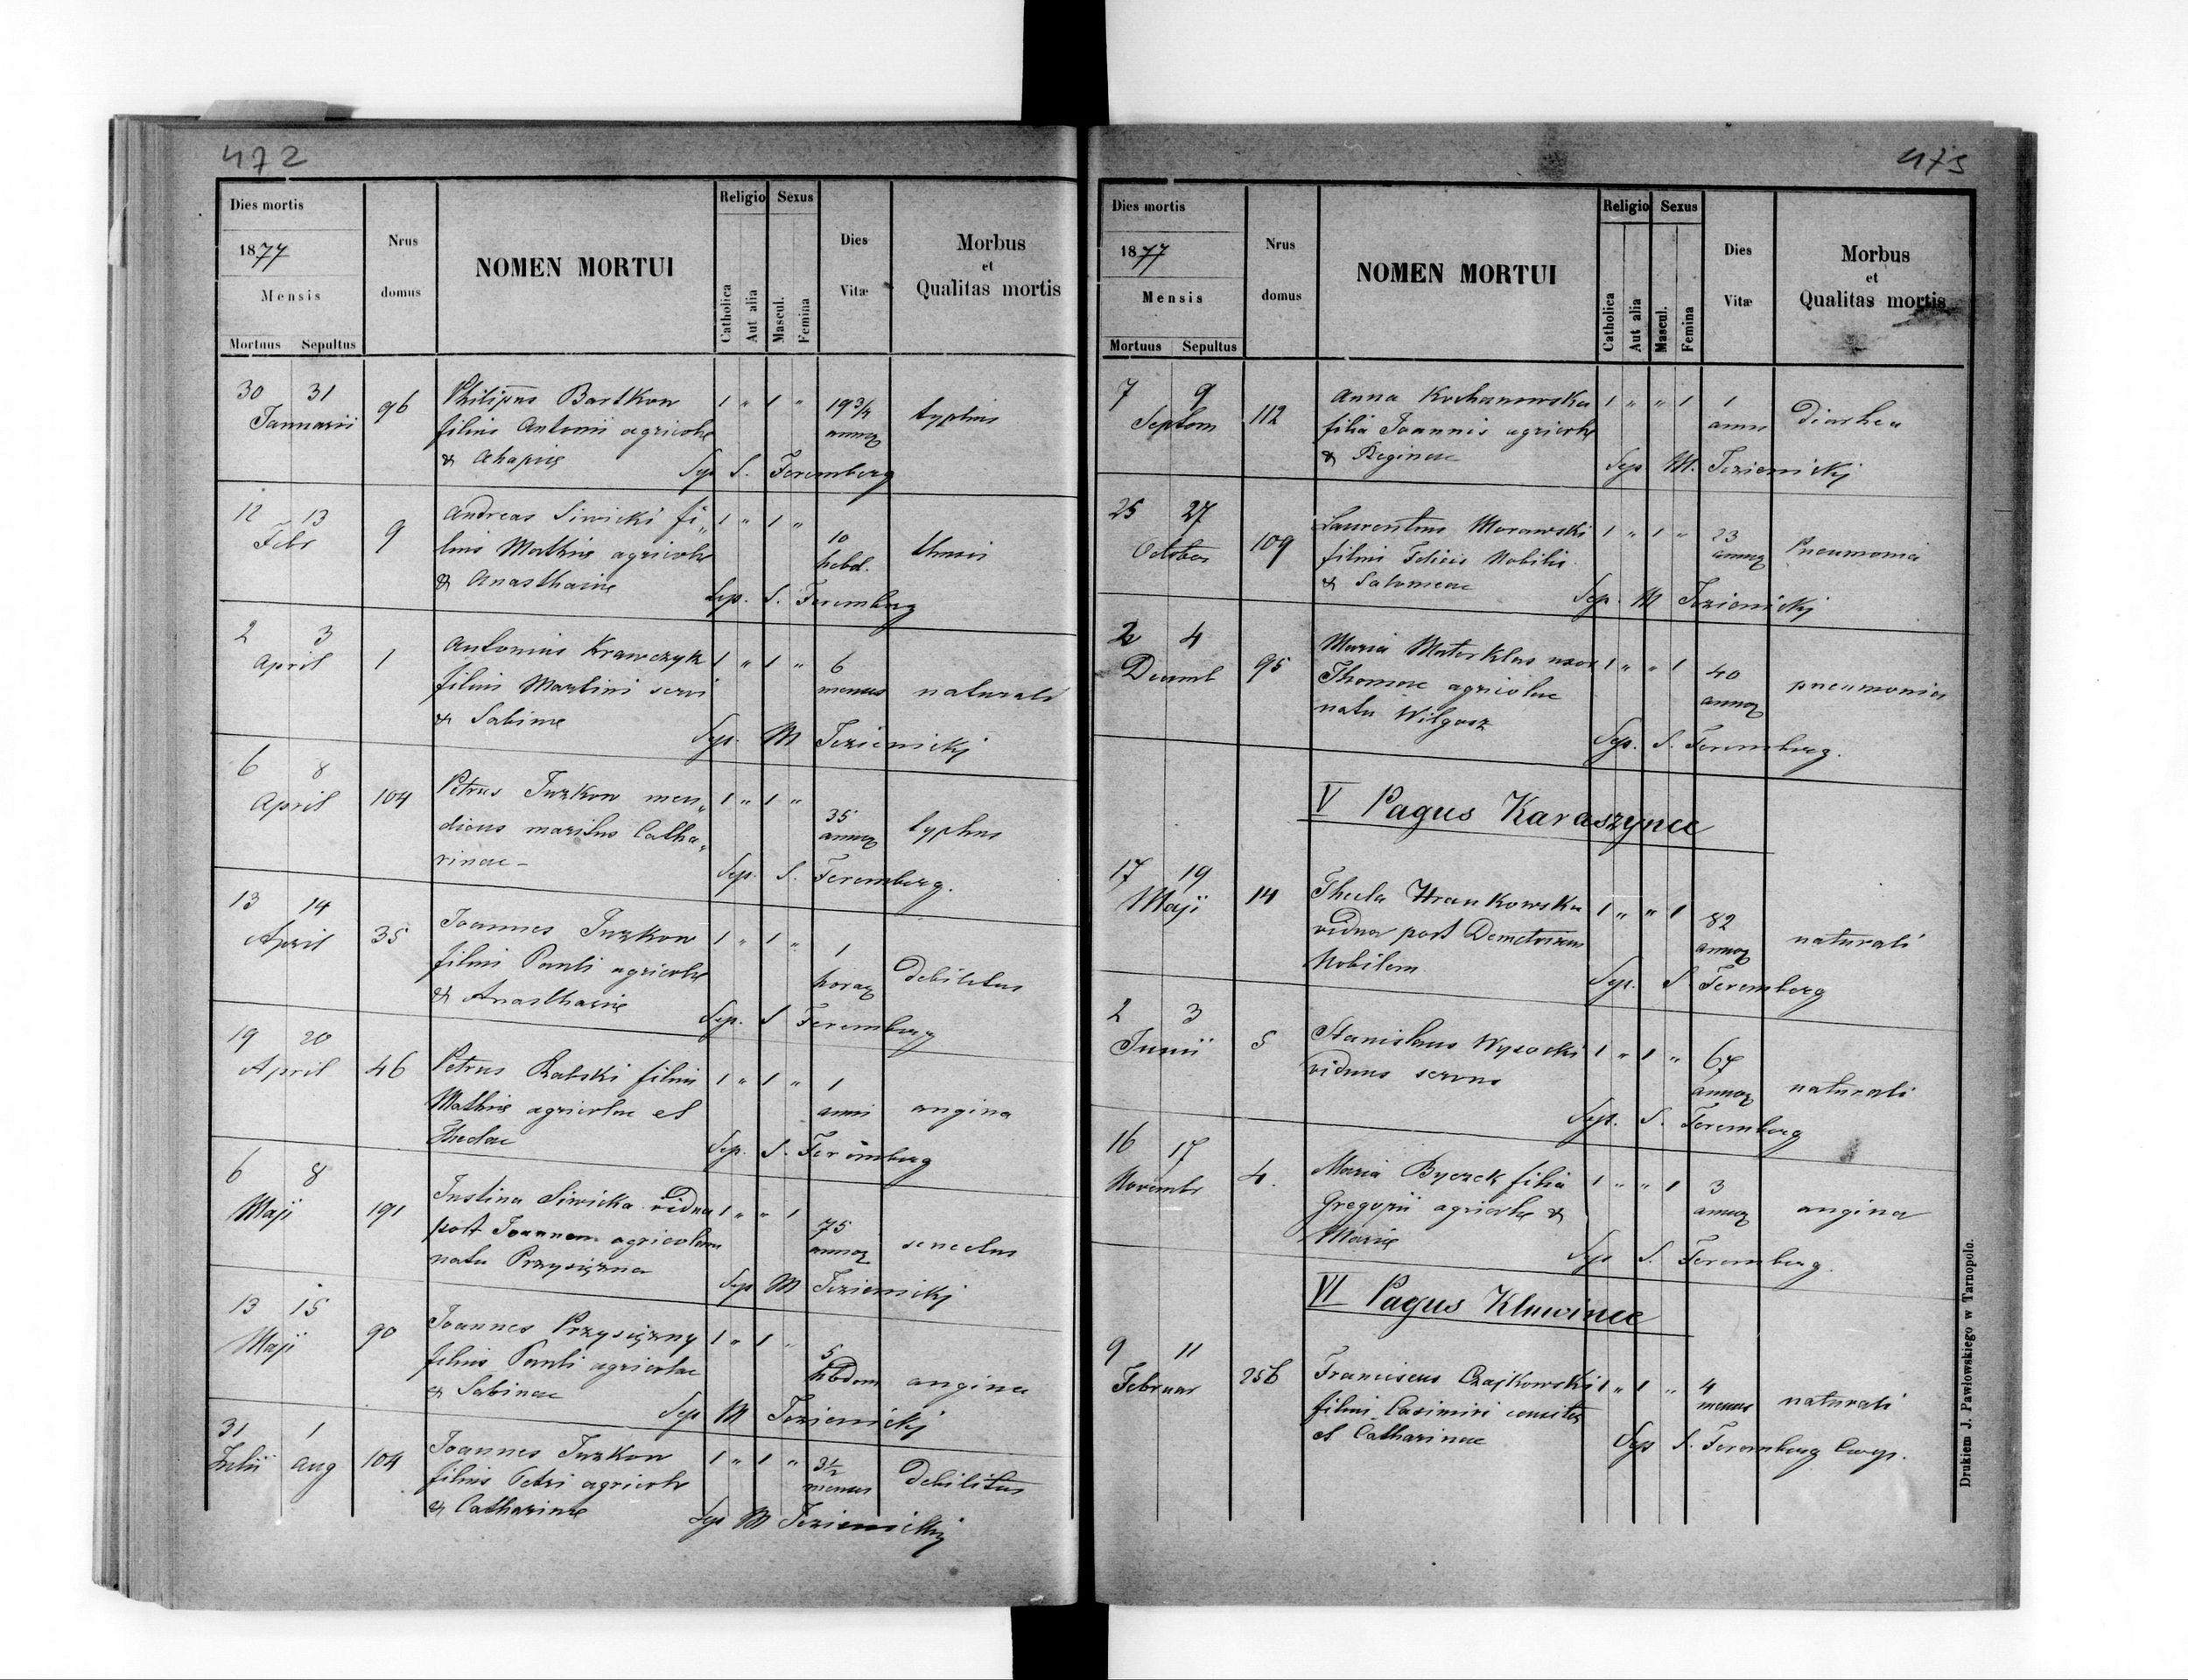 472
Dies mortis
1877
Mensis
Mortuus Sepultus
Nrus domus
NOMEN MORTUI
Religio
Catholica
Aut alia
Sexus
Mascul.
Femina
Dies Vitæ
Morbus et Qualitas mortis
30 31 Januarii 96 Philippus Bartkow 1 " 1 " 19 3/4 typhus
filius Antonii agricolæ annoꝝ
& Ahapiæ Sep S. Feremberg
12 13 Febr 9 Andreas Siwicki fi„ 1 " 1 " 10 tussis
lius Mathiæ agricolæ hebd.
& Anasthasiæ Sep. S. Feremberg
2 3 April 1 Antonius Krawczyk 1 " 1 " 6 naturali
filius Martini servi menses
& Sabinæ Sep. M Jezienickj
6 8 April 104 Petrus Juzkow men„ 1 " 1 " 35 typhus
dicus maritus Catha„ annoꝝ
rinae - Sep. S. Feremberg.
13 14 April 35 Joannes Juzkow 1 " 1 " 1 Debilitas
filius Pauli agricolæ horaꝝ
& Anasthasiæ Sep. S Feremberg
19 20 April 46 Petrus Rabski filius 1 " 1 " 1 angina
Mathiæ agricolae et anni
Theclae Sep. S. Feremberg
6 8 Maji 191 Justina Siwicka vidua 1 " " 1 75 senectus
post Joannem agricolam annoꝝ
nata Przysiężna Sep M Jezienickj
13 15 Maji 90 Joannes Przysiężny 1 " 1 " 5 angina
filius Pauli agricolae hbdom
& Sabinae Sep M Jezienickj
31 1 Julii aug 104 Joannes Juzkow 1 " 1 " 3½ Debilitas
filius Petri agricolæ menses
& Catharinæ Sep M Jezienickj
473
Dies mortis
1877
Mensis
Mortuus Sepultus
Nrus domus
NOMEN MORTUI
Religio
Catholica
Aut alia
Sexus
Mascul.
Femina
Dies Vitæ
Morbus et Qualitas mortis
7 9 Septem 112 Anna Kochanowska 1 " " 1 1 Diarhea
filia Joannis agricolæ anni
& Reginae Sep M. Jezienickj
25 27 October 109 Laurentius Morawski 1 " 1 " 23 Pneumonia
filius Felicis Nobilis annoꝝ
& Salomeae Sep. M Jezienickj
2 4 Decemb 95 Maria Materklas uxor 1 " " 1 40 pneumonia
Thomae agricolae annoꝝ
nata Wilgosz Sep. S. Feremberg.
V Pagus Karaszynce
17 19 Maji 14 Thecla Hrankowska 1 " " 1 82 naturali
vidua post Demetrium annoꝝ
Nobilem Sep. S Feremberg
2 3 Junii 5 Stanislaus Wysocki 1 " 1 " 67 naturali
viduus servus annoꝝ
Sep. S. Feremberg
16 17 Novembr 4. Maria Byczek filia 1 " " 1 3 angina
Gregorii agricolæ & annoꝝ
Mariæ Sep S. Feremberg.
VI Pagus Kluwince
9 11 Februar 256 Franciscus Czajkowski 1 " 1 " 4 naturali
filius Casimiri menses
et Catharinae Sep S. Feremberg Coop.
Drukiem J. Pawłowskiego w Tarnopolu.